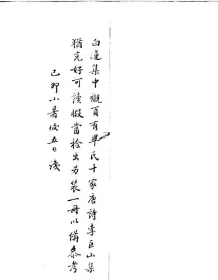 白蓮集中襯頁有畢氏十家唐詩李巨山集
猶完好可讀暇當檢出另裝一冊以備參考
己卯小暑後五日識